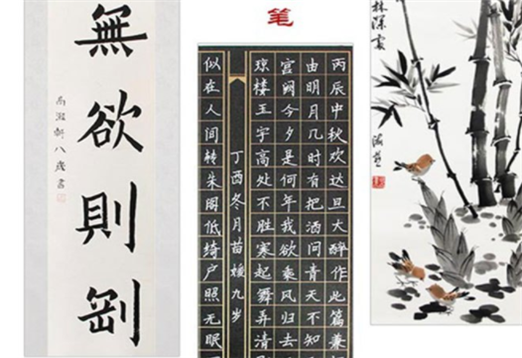 笔
無欲則剛
八歲書
丙辰中秋欢达旦大醉作此篇兼
由明月几时有把酒问青天不知
宫阙今夕是何年我欲乘风归去
琼楼玉宇高处不胜寒起舞弄清
丁酉冬月苗媛九岁
似在人间转朱阁低绮户照无眠
林深處